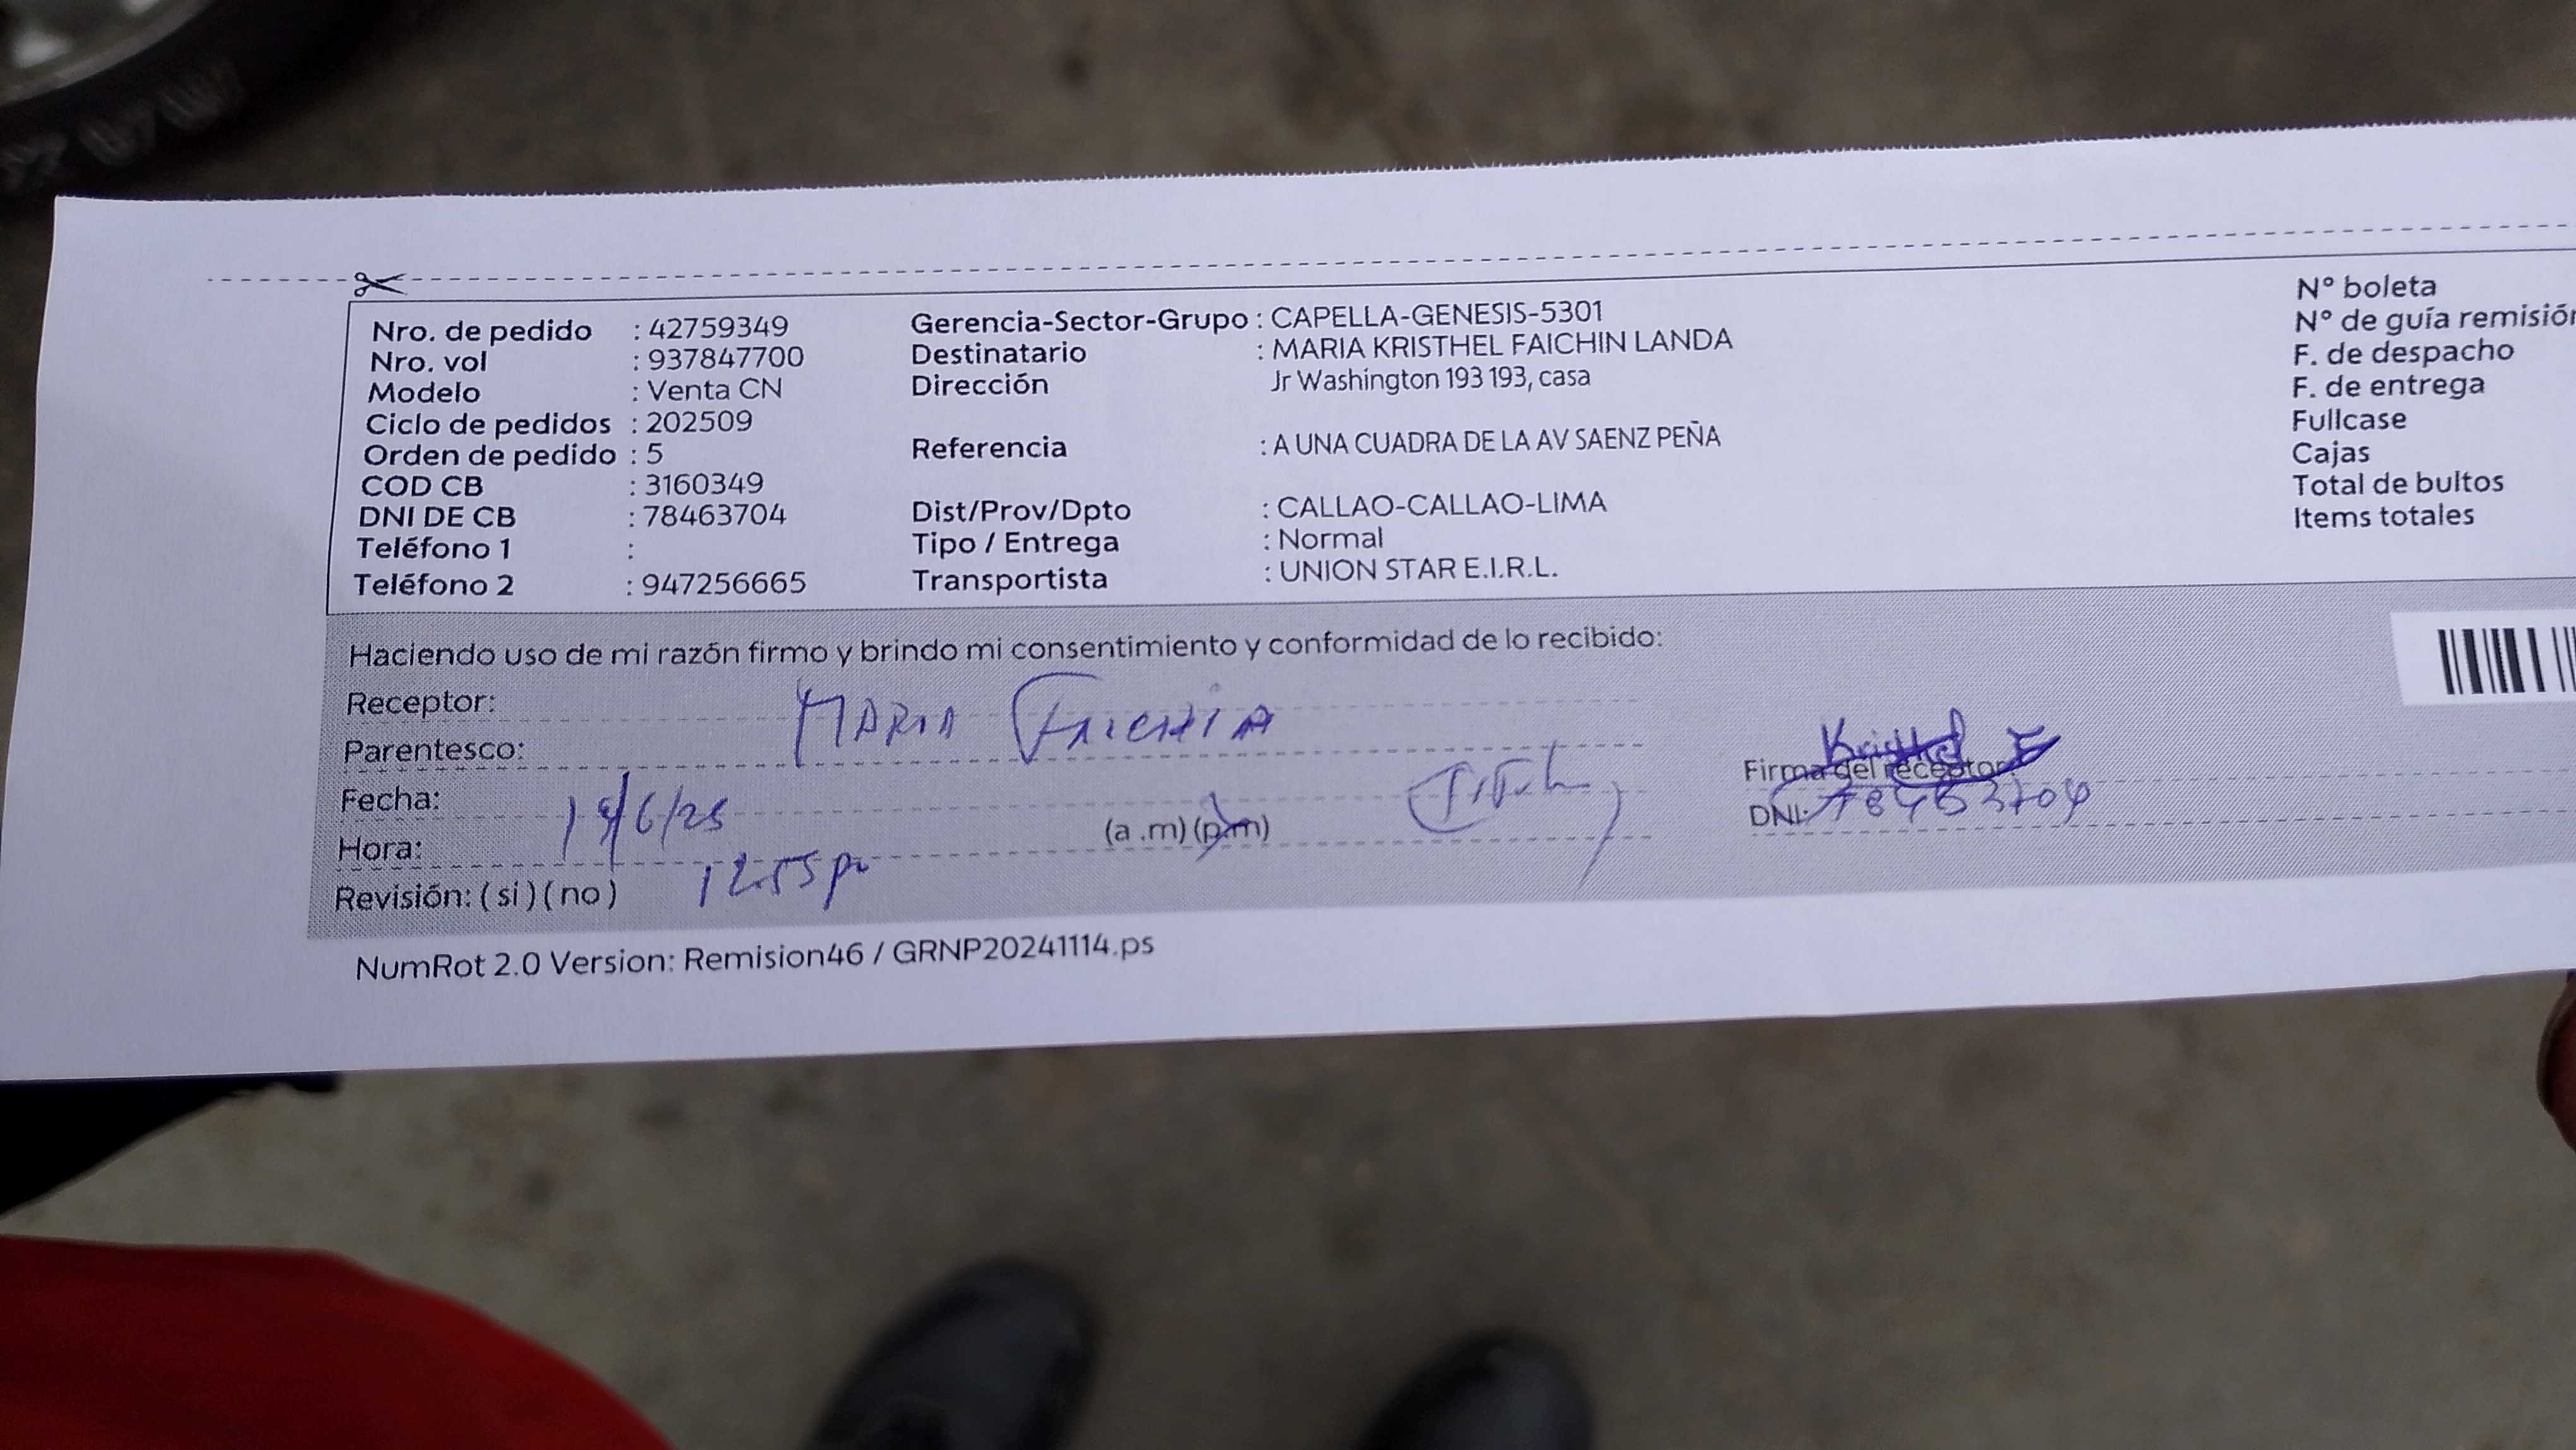 Nro. de pedido : 42759349
Nro. vol : 937847700
Modelo : Venta CN
Ciclo de pedidos : 202509
Orden de pedido : 5
COD CB : 3160349
DNI DE CB : 78463704
Teléfono 1 :
Teléfono 2 : 947256665
Gerencia-Sector-Grupo : CAPELLA-GENESIS-5301
Destinatario : MARIA KRISTHEL FAICHIN LANDA
Dirección Jr Washington 193 193, casa
Referencia : A UNA CUADRA DE LA AV SAENZ PEÑA
Dist/Prov/Dpto : CALLAO-CALLAO-LIMA
Tipo / Entrega : Normal
Transportista : UNION STAR E.I.R.L.
N° boleta
N° de guía remisión
F. de despacho
F. de entrega
Fullcase
Cajas
Total de bultos
Items totales
Haciendo uso de mi razón firmo y brindo mi consentimiento y conformidad de lo recibido:
Receptor: MARIA
Parentesco:
Fecha: 19/6/25
Hora: 12:55 pm (a .m) (p.m)
Revisión: ( si ) ( no )
Firma del receptor: Kristhel F
DNI: 78463704
NumRot 2.0 Version: Remision46 / GRNP20241114.ps